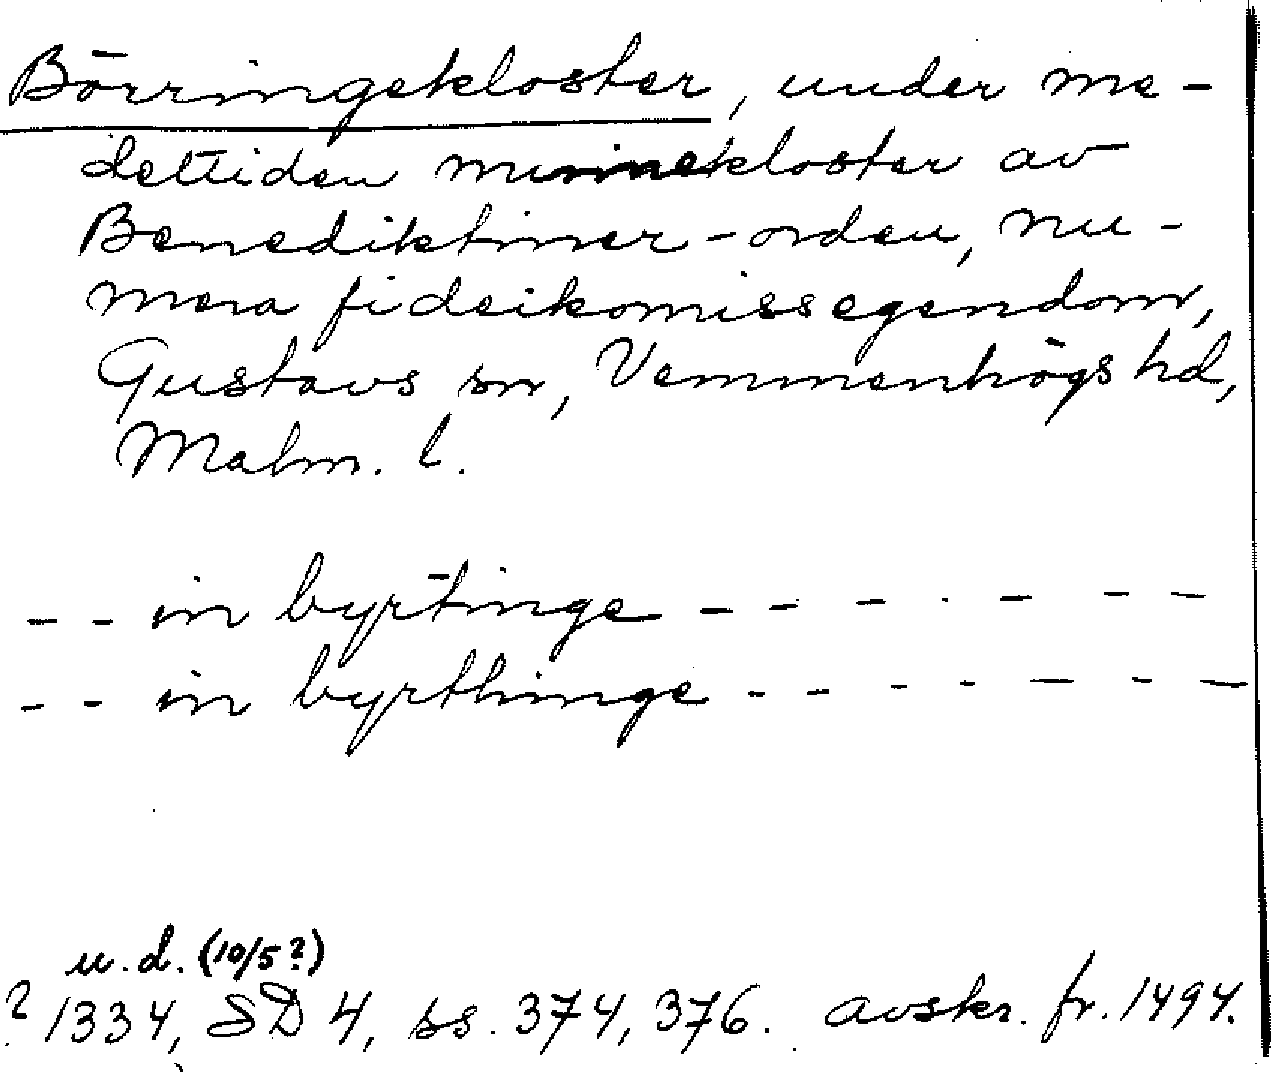 Börringekloster, under me-
deltiden nunnekloster av
Benediktiner-orden, nu-
mera fideikomissegendom,
Gustavs sn, Vemmenhögs hd,
Malm. l.
-- in byrtinge -- - - - - - -
-- in byrthinge -- - - - - - -
u.d. (10/5?)
? 1334, SD 4, ss. 374, 376. avskr. fr. 1494.